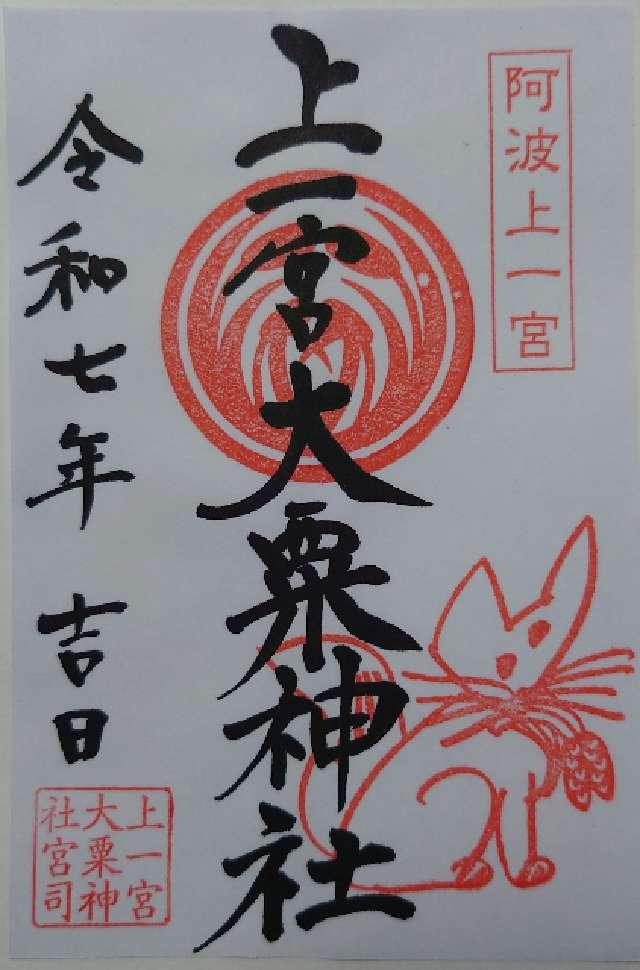 阿波上一宮
上一宮大粟神社
令和七年 吉日
上一宮
大粟神
社宮司